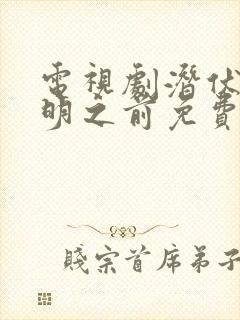 電視劇潛伏
明之前免費
賤宗首席弟子